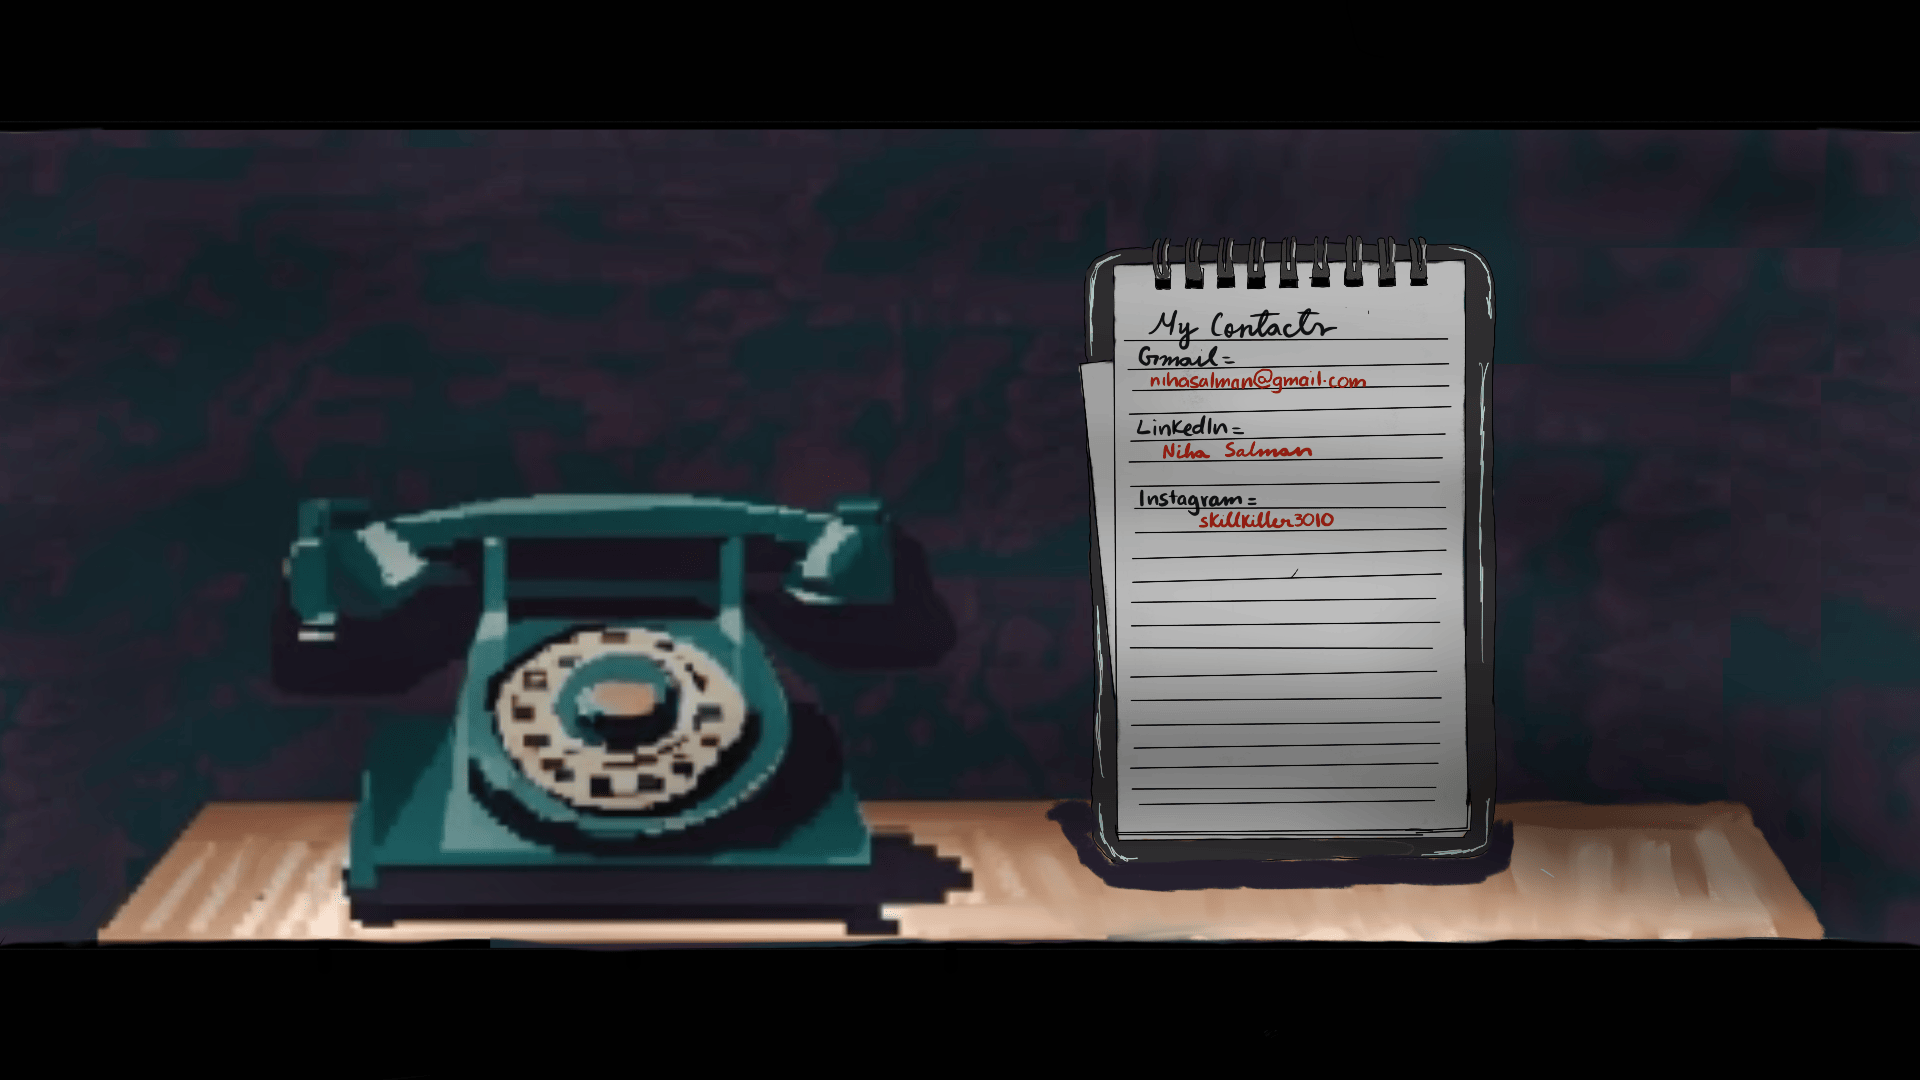 My Contacts
Gmail=
nihasalman@gmail.com
LinkedIn=
Niha Salman
Instagram=
skillkiller3010